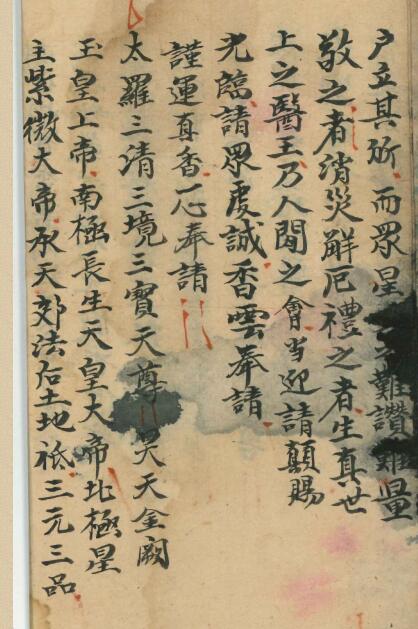 户立其所而眾星之難讚難量
敬之者消災解厄禮之者生真世
上之醫王乃人間之會當迎請顛賜
光臨請眾虔誠香雲奉請
謹運真香一心奉請
太羅三清三境三寶天尊昊天金闕
玉皇上帝南極長生天皇大帝北極星
主紫微大帝承天郊法后土地祗三元三品